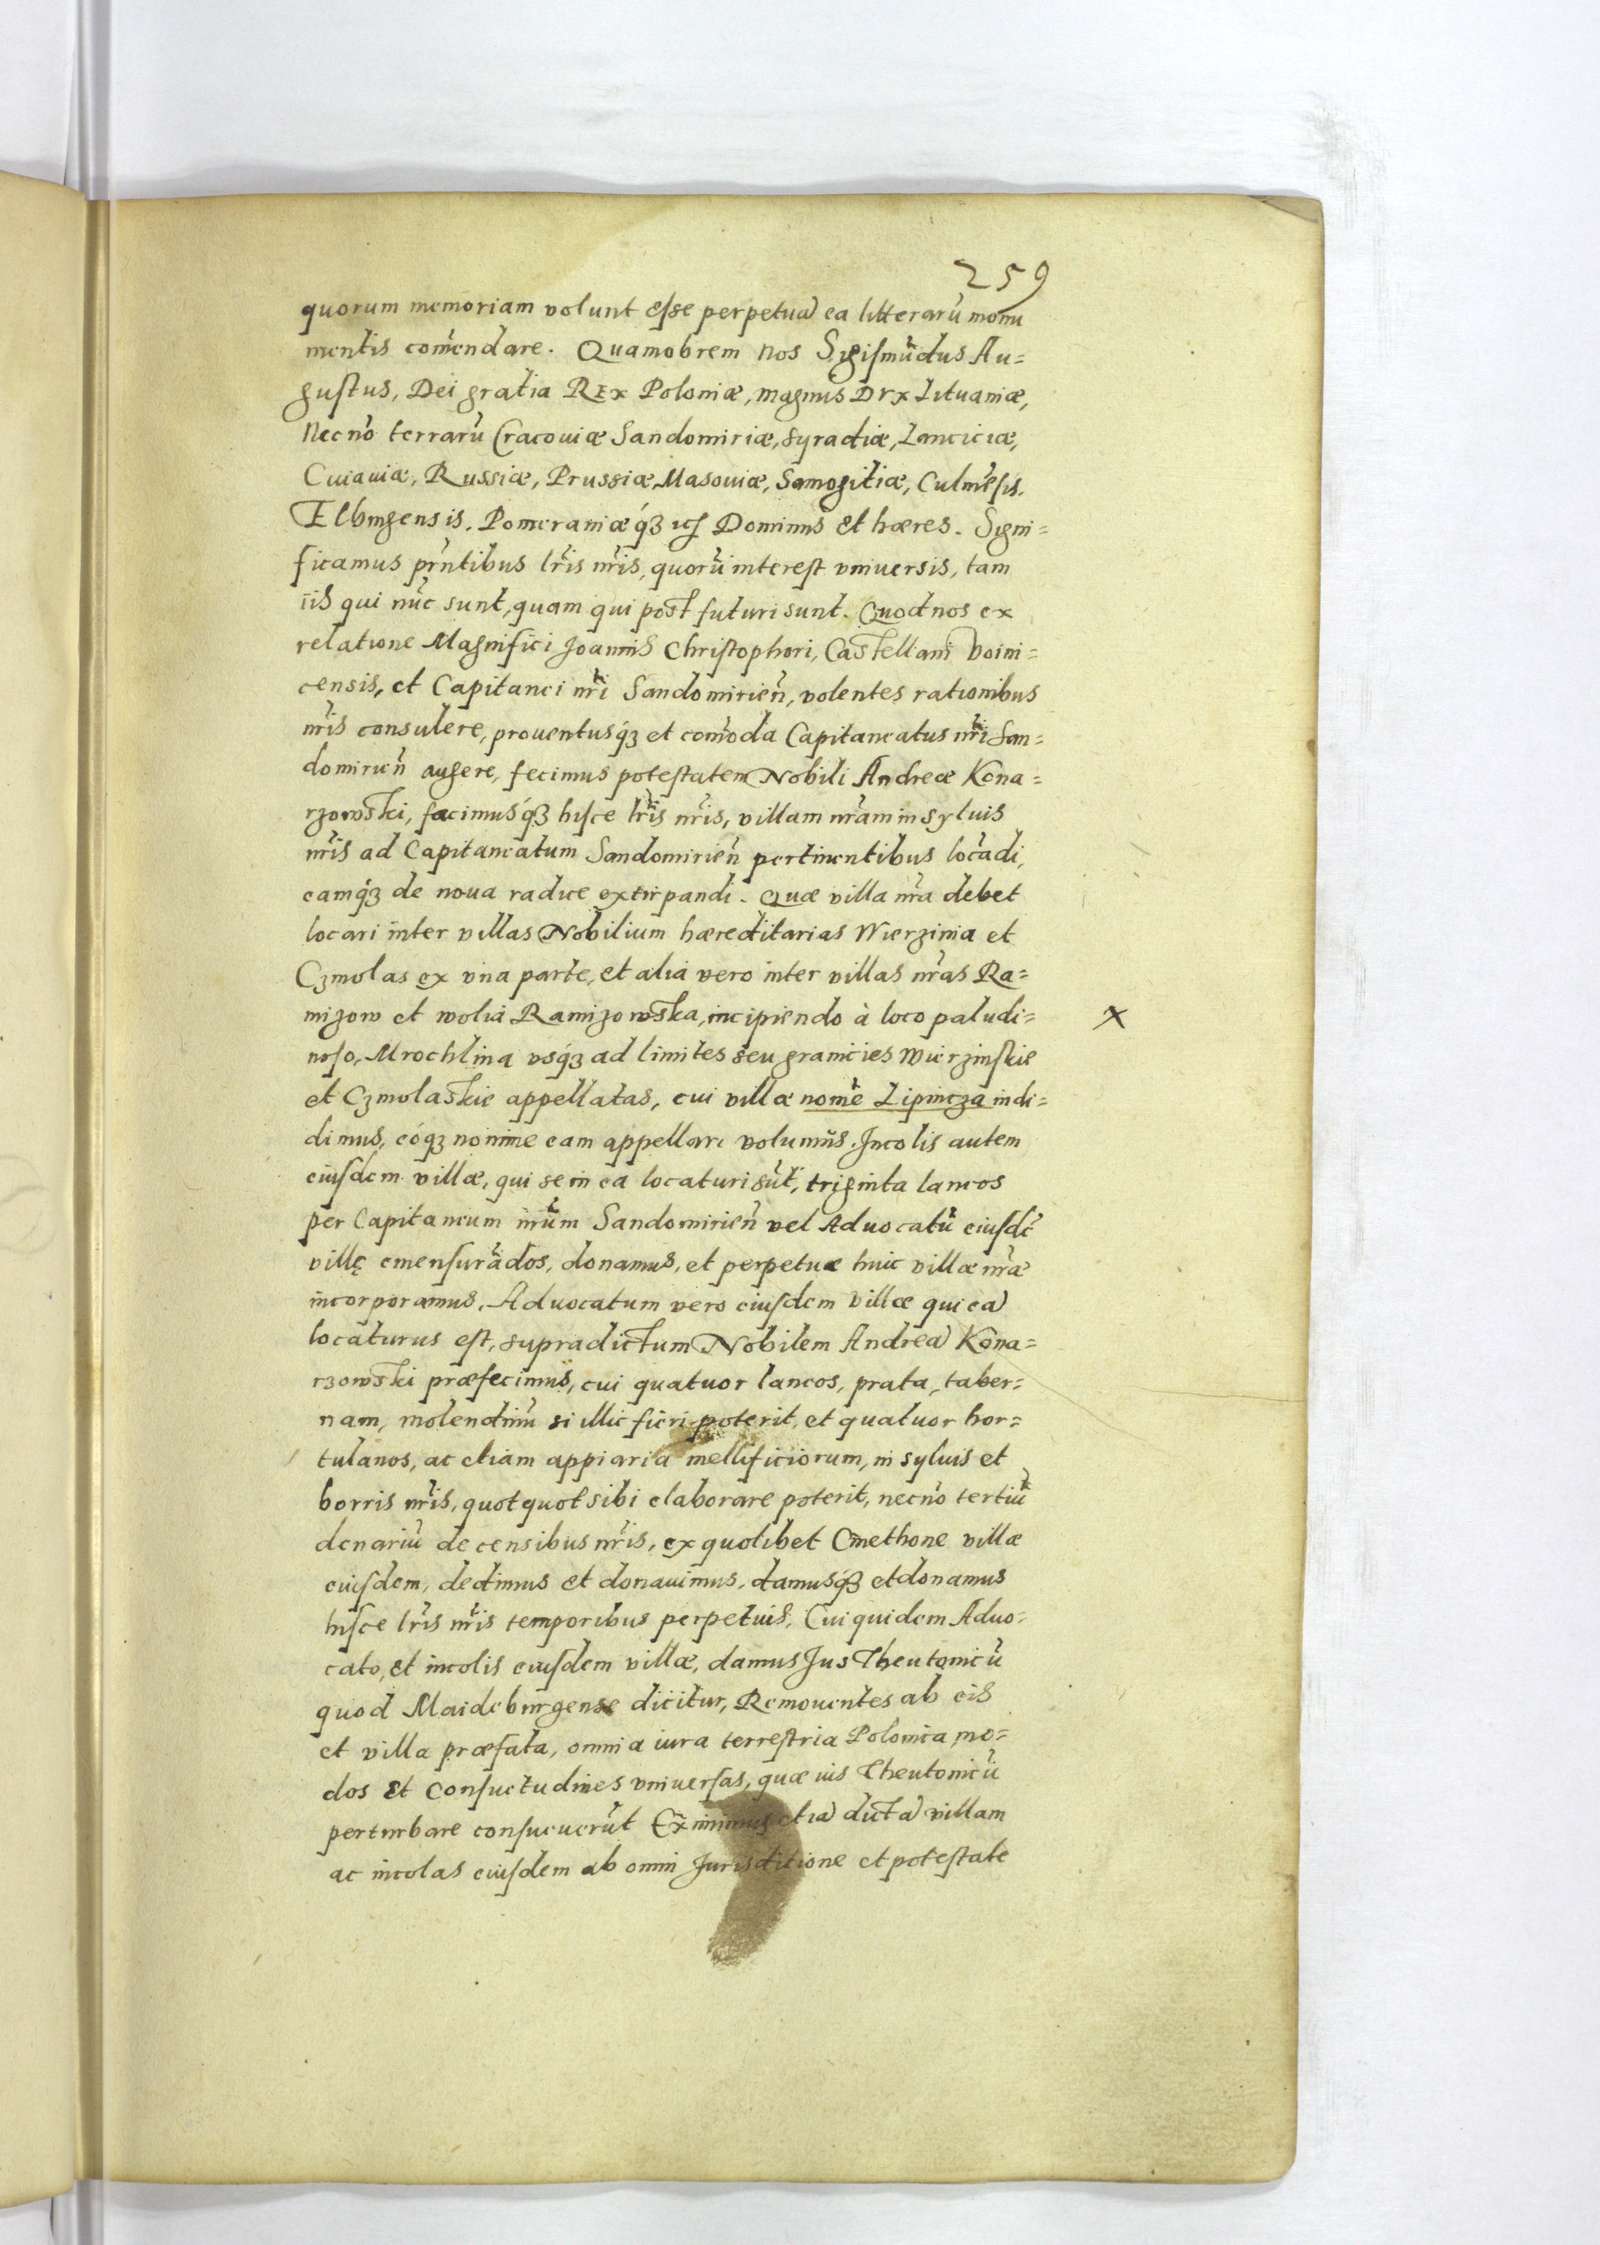 259
quorum memoriam volunt esse perpetuā ea litterarū monu
mentis com̄endare. Quamobrem Nos Sigismūdus Au=
gustus, Dei gratia REx Poloniæ, Magnus Dvx Lituaniæ,
Necnō terrarū Cracouiæ Sandomiriæ, Syradiæ, Lanciciæ,
Cuiauiæ, Russiæ, Prussiæ, Masouiæ, Samogitiæ, Culmēsis,
Elbingensis, Pomeraniæq́ʒ Dominus et hæres. Signi=
ficamus pn̄tibus lr̄is nr̄is, quorū interest vniuersis, tam
iis qui nūc sunt, quam qui post futuri sunt. Quod nos ex
relatione Magnifici Joannis Christophori, Castellani Voini=
censis, et Capitanei nr̄i Sandomirien̄, volentes rationibus
nr̄is consulere, prouentusq́ʒ et com̄oda Capitaneatus nr̄i San=
domirien̄ augere, fecimus potestatem Nobili Andreæ Kona=
rzowski, facimusq́ʒ hisce lr̄is nr̄is, villam nr̄am in syluis
nr̄is ad Capitaneatum Sandomirien̄ pertinentibus locādi,
eamq́ʒ de noua radice extirpandi. Quæ villa nr̄a debet
locari inter villas Nobilium hæreditarias Wierzinia et
Czmolas ex vna parte, et alia vero inter villas nr̄as Ra=
mizow et wolia Ramizowska, incipiendo à loco paludi=
noso, Mrochlina vsq́ʒ ad limites seu granicies Wierzinskie
et Czmolaskie appellatas, cui villæ nomē Lipincza indi=
dimus, eóqʒ nomine eam appellari volumus. Incolis autem
eiusdem villæ, qui se in ea locaturi sūt, triginta laneos
per Capitaneum nr̄um Sandomirien̄ vel Aduocatū eiusdē
villę emensurādos, donamus, et perpetuæ huic villæ nr̄æ
incorporamus. Aduocatum vero eiusdem villæ qui eā
locaturus est, supradictum Nobilem Andreā Kona=
rzowski præfecimus, cui quatuor laneos, prata, taber=
nam, molendinū si illic fieri poterit, et quatuor hor=
tulanos, ac etiam appiaria mellificiorum, in syluis et
borris nr̄is, quotquot sibi elaborare poterit, necnō tertiū
denariū de censibus nr̄is, ex quolibet Cmethone villæ
eiusdem, dedimus et donauimus, damusq́ʒ et donamus
hisce lr̄is nr̄is temporibus perpetuis. Cui quidem Aduo=
cato, et incolis eiusdem villæ, damus Jus Theutonicū
quod Maideburgense dicitur, Remouentes ab eis
et villa præfata, omnia iura terrestria Polonica, mo=
dos et Consuetudines vniuersas, quæ ius Theutonicū
perturbare consueuerūt Eximimus etiā dictā villam
ac incolas eiusdem ab omni Jurisditione et potestate
x